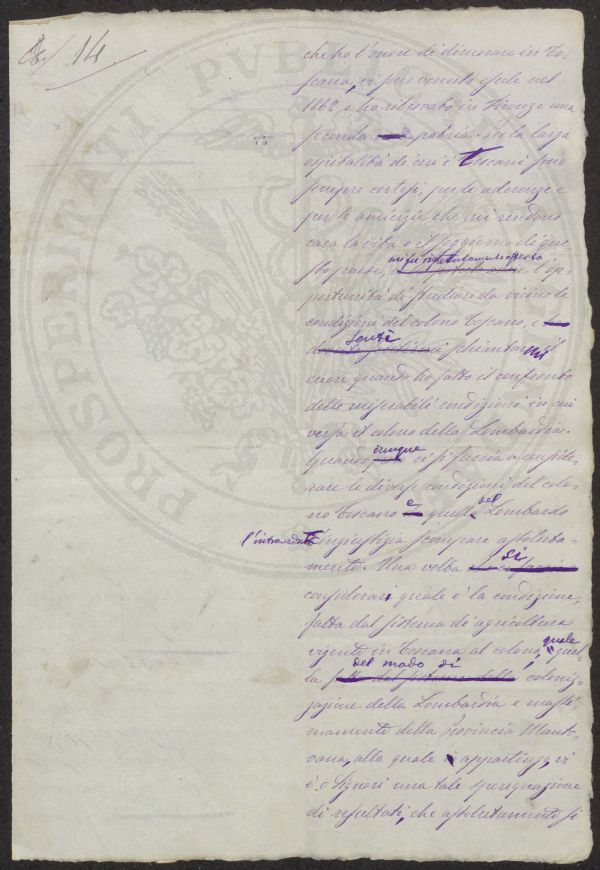 14
che ho l'onore di dimorare in To-
scana, vi sono venuto esule nel
186 e ho ritrovato in Firenze una
seconda patria. per la larga
ospitalità di cui i Toscani sono
sempre cortesi, per le aderenze e
per le amicizie che mi rendono
cara la vita e il soggiorno di que-
sto paese, mi fu ripetutamente offerta l'op-
portunità di studiare da vicino le
condizioni del colono Toscano, e
sentii schiantarmi il
cuore quando ho fatto il confronto
delle miserabili condizioni in cui
versa il colono della Lombardia.
Quando dunque ci si faccia a conside-
rare le diverse condizioni del colo-
no Toscano e quelle del Lombardo
l'intraveduta ingiustizia scompare assoluta-
mente. Una volta si
consideri quale è la condizione,
fatta dal sistema di agricoltura
vigente in Toscana al colono, quale quel-
la del modo di coloniz-
zazione della Lombardia e massi-
mamente della Provincia Manto-
vana, alla quale appartengo, vi
è o Signori una tale sperequazione
di resultati, che assolutamente si